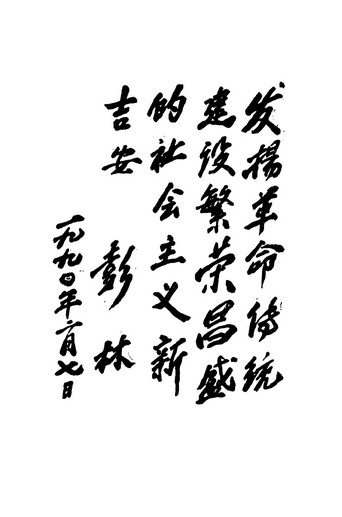 发揚革命传统
建设繁荣昌盛
的社会主义新
吉安 彭林
一九九〇年六月七日